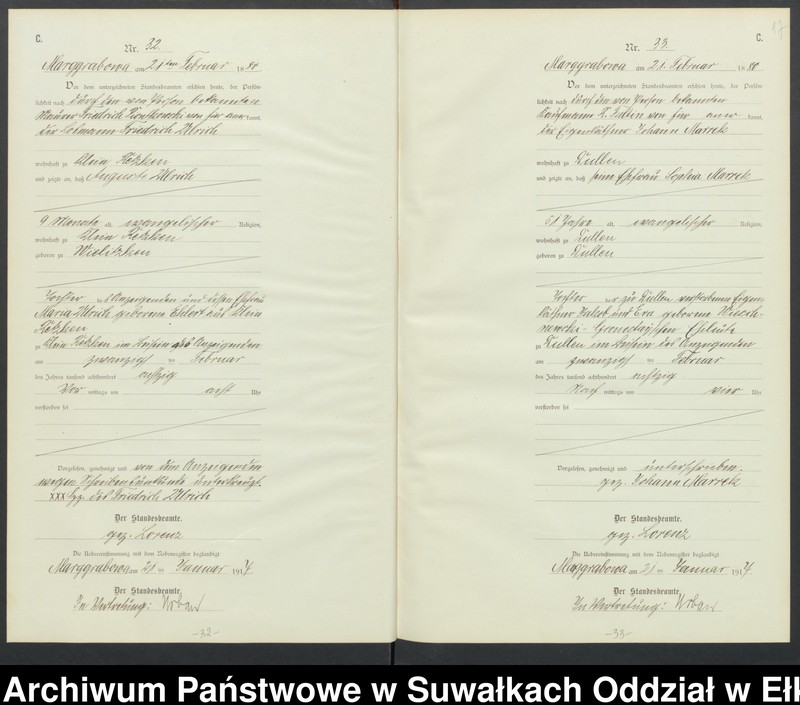 C.
Nr. 32.
Marggrabowa am 21ten Februar 1880
Vor dem unterzeichneten Standesbeamten erschien heute, der Persön-
lichkeit nach durch den von Person bekannten
Maurer Friedrich von hier aner kannt,
der Losmann Friedrich Ulrich
wohnhaft zu Klein Retzken
und zeigte an, daß Auguste Ulrich
9 Monate alt, evangelischer Religion,
wohnhaft zu Klein Retzken
geboren zu Wielitzken
Tochter des Anzeigenden und dessen Ehefrau
Maria Ulrich geborene Ehlert aus Klein
Retzken
zu Klein Retzken im Hause des Anzeigenden
am zwanzigsten Februar
des Jahres tausend achthundert achtzig
Vor mittags um acht Uhr
verstorben sei
Vorgelesen, genehmigt und von dem Anzeigenden
wegen Schreibensunkunde unterkreuzt.
XXX Hz. des Friedrich Ulrich
Der Standesbeamte.
gez. Lorenz
Die Uebereinstimmung mit dem Nebenregister beglaubigt
Marggrabowa am 21 ten Januar 1914
Der Standesbeamte.
In Vertretung: Urban
-32-
17
C.
Nr. 33.
Marggrabowa am 21. Februar 1880
Vor dem unterzeichneten Standesbeamten erschien heute, der Persön-
lichkeit nach durch den von Person bekannten
Kaufmann von hier aner kannt,
der Eigenkäthner Johann Marrek
wohnhaft zu Dullen
und zeigte an, daß seine Ehefrau Sophia Marrek
61 Jahre alt, evangelischer Religion,
wohnhaft zu Dullen
geboren zu Dullen
Tochter der zu Dullen verstorbenen Eigen-
käthner Jakob und Eva geborene
Eheleute
zu Dullen im Hause des Anzeigenden
am zwanzigsten Februar
des Jahres tausend achthundert achtzig
Nach mittags um vier Uhr
verstorben sei
Vorgelesen, genehmigt und unterschrieben.
gez. Johann Marrek
Der Standesbeamte.
gez. Lorenz
Die Uebereinstimmung mit dem Nebenregister beglaubigt
Marggrabowa am 21 ten Januar 1914
Der Standesbeamte.
In Vertretung: Urban
-33-
Archiwum Państwowe w Suwałkach Oddział w Ełk